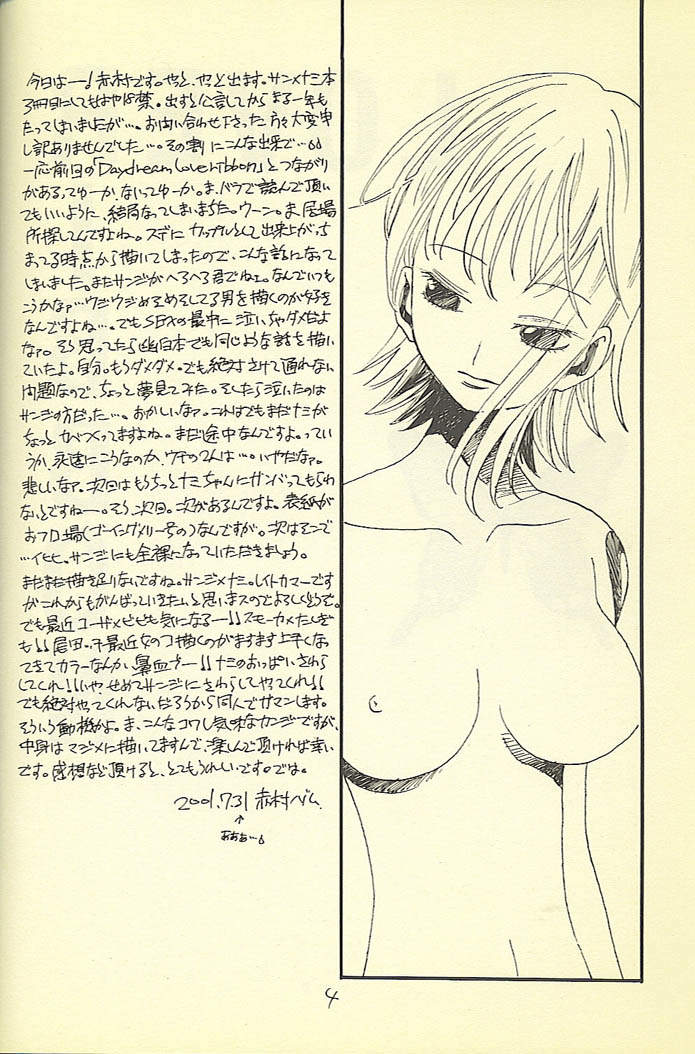 今日はーー!赤村です。やっと、やっと出ます。サンメナミ本
3冊目にしてもはや18禁。出すと公言してからまる一年も
たってしまいましたが…。お問い合わせ下さった方々大変申
し訳ありませんでした…。その割にこんな出来で…
一応前回の「Daydream Loveribbon」とつながり
がある、てゆーか、ないってゆーか。ま、バラで読んで頂い
てもいいように、結局なってしまいまちた。ウーン。ま、居場
所探してんですよね。スデにカップルとして出来上がっち
まってる時点から描いてしまったので、こんな話になって
しまいました。またサンジがへろへろ君でねェ。なんでいつも
こうかなァ…ウジウジめそめそしてる男を描くのが好き
なんですよね…。でもSEXの最中に泣いちゃダメだよ
なァ。そう思ってたら幽白本でも同じような話を描い
ていたよ。自分。もうダメダメ。でも絶対さけて通れない
問題なので、ちょっと夢見てみた。そしたら泣いたのは
サンジの方だった…。おかしいなァ。これはでもまだナミが
ちょっとカベつくってますよね。まだ途中なんですよ。ってい
うか、永遠にこうなのか、ウチの2人は…。いやだなァ。
悲しいなァ。次回はもうちっとナミちゃんにガンバってもらわ
ないとですねー。そう、次回。次があるんですよ。表紙が
おフロ場(ゴーイングメリー号の)なんですが。次はそこで
…イヒヒ。サンジにも全裸になっていただきましょう。
まだまだ描き足りないですね。サンジ×ナミ。レイトカマーです
がこれからもがんばっていきたいと思いまスのでよろしくどうぞ。
でも最近コーザ×ビビも気になるーー!!スモーカ×たしぎ
も!!尾田っ子最近女のコ描くのがますます上手くなっ
てきてカラーなんか、鼻血ブー!!ナミのおっぱいさわら
してくれ!!いや、せめてサンジにさわらしてやってくれ!!
でも絶対やってくれないだろうから同人でガマンします。
そういう動機かよ。ま、こんなコワレ気味なカンジですが、
中身はマジメに描いてますんで、楽しんで頂ければ幸い
です。感想など頂けると、とてもうれしいです。では。
2001.7.31 赤村べム
↑
あああ…
4